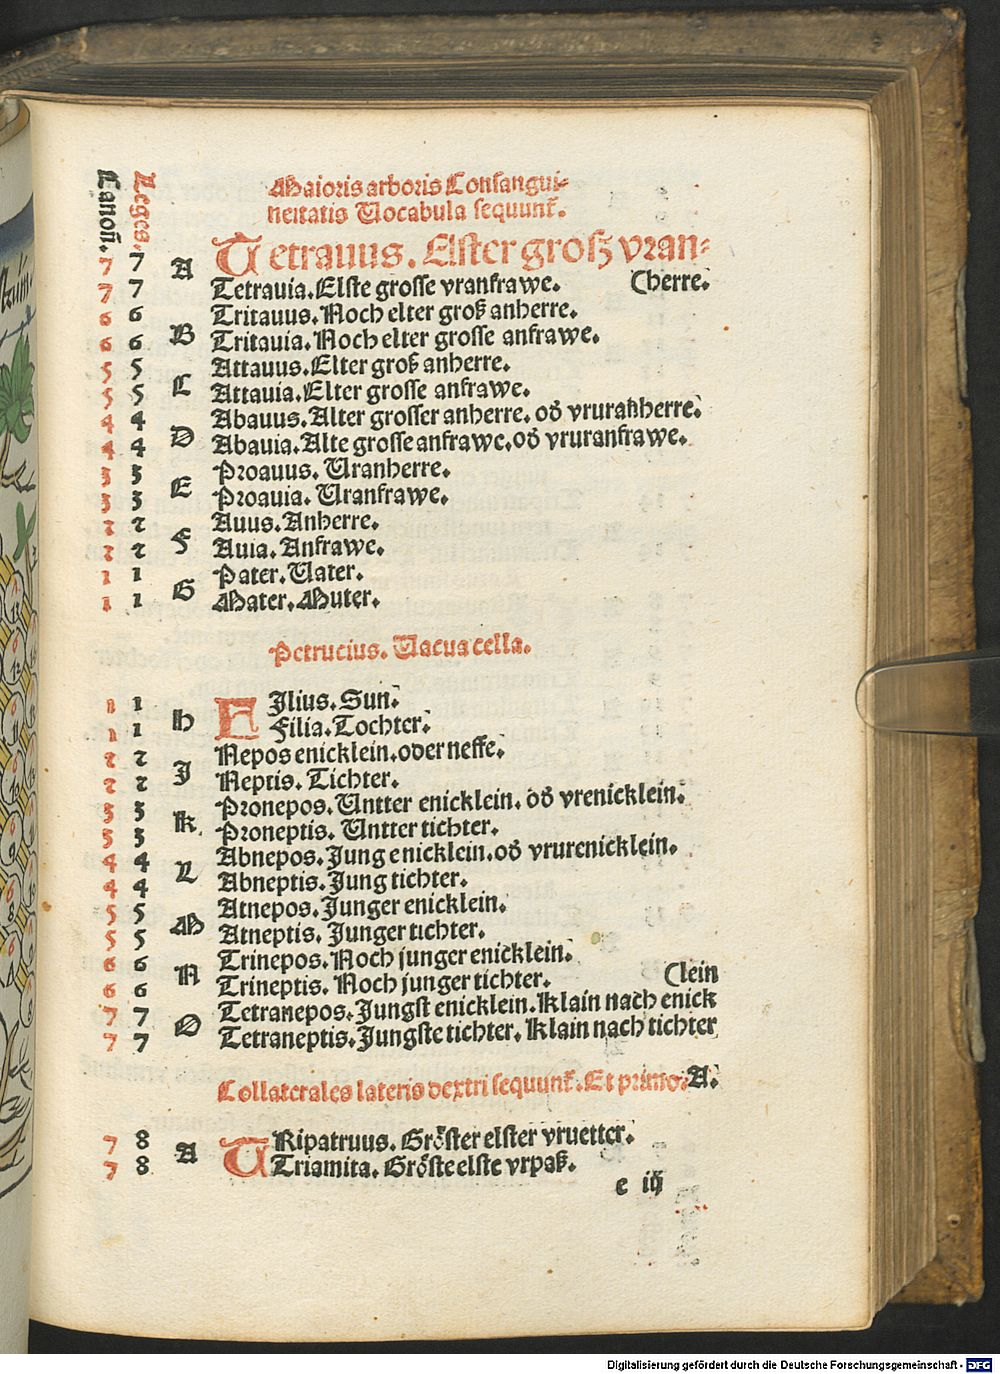 Canoñ. Leges.
Maioris arboris Consangui-
neitatis Vocabula sequunt̃.
7 7 A Tetrauus. Elster grosz vran-
7 7 Tetrauia. Elste grosse vranfrawe. (herre.
6 6 B Tritauus. Noch elter groß anherre.
6 6 Tritauia. Noch elter grosse anfrawe.
5 5 C Attauus. Elter groß anherre.
5 5 Attauia. Elter grosse anfrawe.
4 4 D Abauus. Alter grosser anherre. od̃ vrurañherre.
4 4 Abauia. Alte grosse anfrawe. od̃ vruranfrawe.
3 3 E Proauus. Vranherre.
3 3 Proauia. Vranfrawe.
2 2 F Auus. Anherre.
2 2 Auia. Anfrawe.
1 1 G Pater. Vater.
1 1 Mater. Muter.
Petrucius. Vacua cella.
1 1 H FIlius. Sun.
1 1 Filia. Tochter.
2 2 J Nepos enicklein. oder neffe.
2 2 Neptis. Tichter.
3 3 K. Pronepos. Vntter enicklein. od̃ vrenicklein.
3 3 Proneptis. Vntter tichter.
4 4 L Abnepos. Jung enicklein. od̃ vrurenicklein.
4 4 Abneptis. Jung tichter.
5 5 M Atnepos. Junger enicklein.
5 5 Atneptis. Junger tichter.
6 6 N Trinepos. Noch junger enicklein.
6 6 Trineptis. Noch junger tichter. (lein
7 7 O Tetranepos. Jungst enicklein. Klain nach enick
7 7 Tetraneptis. Jungste tichter. Klain nach tichter
Collaterales lateris dextri sequunt̃. Et primo. A.
7 8 A TRipatruus. Gröster elster vruetter.
7 8 Triamita. Gröste elste vrpaß.
e iij
Digitalisierung gefördert durch die Deutsche Forschungsgemeinschaft - DFG